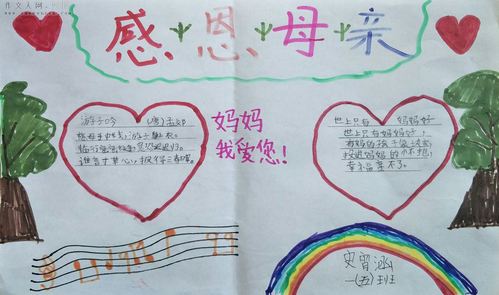 作文人网
感恩母亲
游子吟 (唐)孟郊
慈母手中线,游子身上衣。
临行密密缝,意恐迟迟归。
谁言寸草心,报得三春晖。
妈妈
我爱您!
世上只有 妈妈好
世上只有妈妈好,
有妈的孩子像块宝,
投进妈妈的怀抱,
幸福享不了。
一(五)班